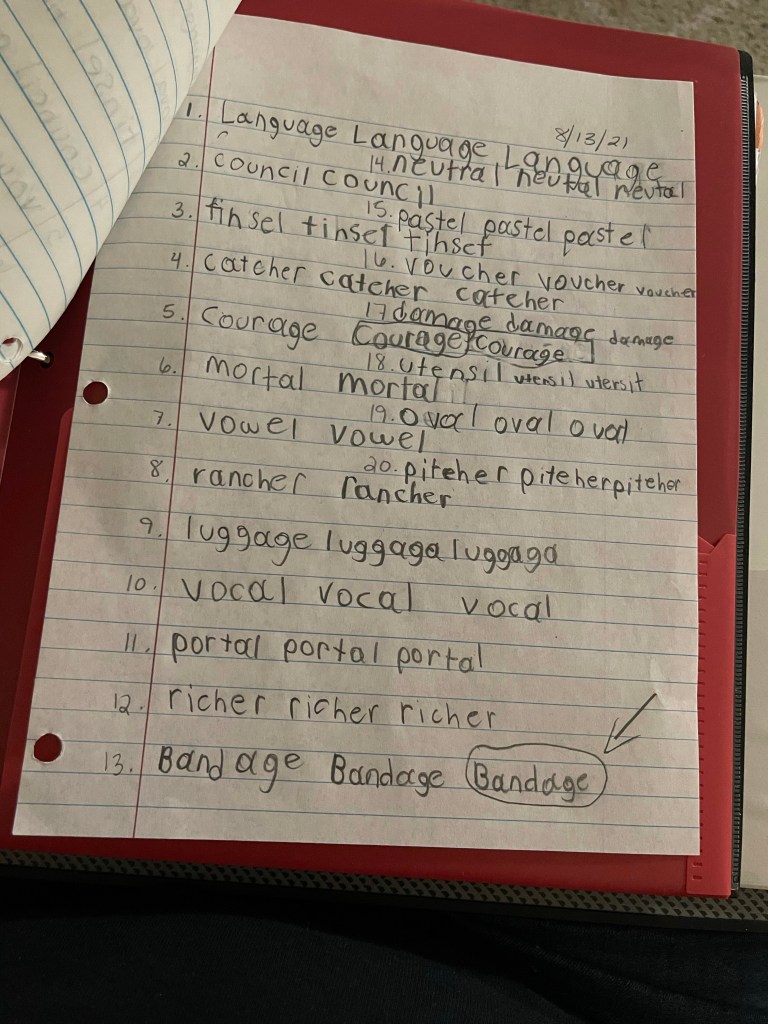 8/13/21
1. Language Language Language
2. council council
14. neutral neutral neutal
3. tinsel tinsel tinsel
15. pastel pastel pastel
4. catcher catcher catcher
16. voucher voucher voucher
5. Courage Courage Courage
17 damage damage damage
6. mortal mortal
18. utensil utensil utensil
7. vowel vowel
19. Oval oval oval
8. rancher rancher
20. pitcher pitcher pitcher
9. luggage luggaga luggaga
10. vocal vocal vocal
11. portal portal portal
12. richer richer richer
13. Bandage Bandage Bandage